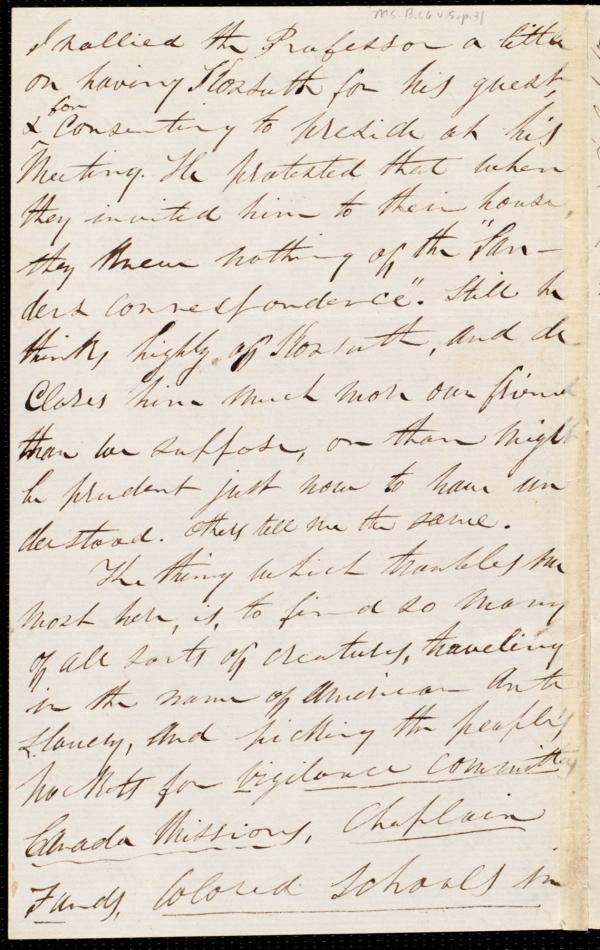 MS. B.1.6 V.5, p.31
I rallied the Professor a little
on having Kossuth for his guest,
& for Consenting to preside at his
Meeting. He protested that when
they invited him to their house,
they knew nothing of the "San-
ders correspondence". Still he
thinks highly of Kossuth, and de-
Clares him much more our friend
than we suppose, or than might
be prudent just now to have un
derstood. Others tell me the same.
The thing which troubles me
most here, is, to find so many
of all sorts of creatures, traveling
in the name of American Anti
Slavery, and picking the people's
pockets for Vigilance Committees
Canada Missions, Chaplain
Funds, Colored Schools in